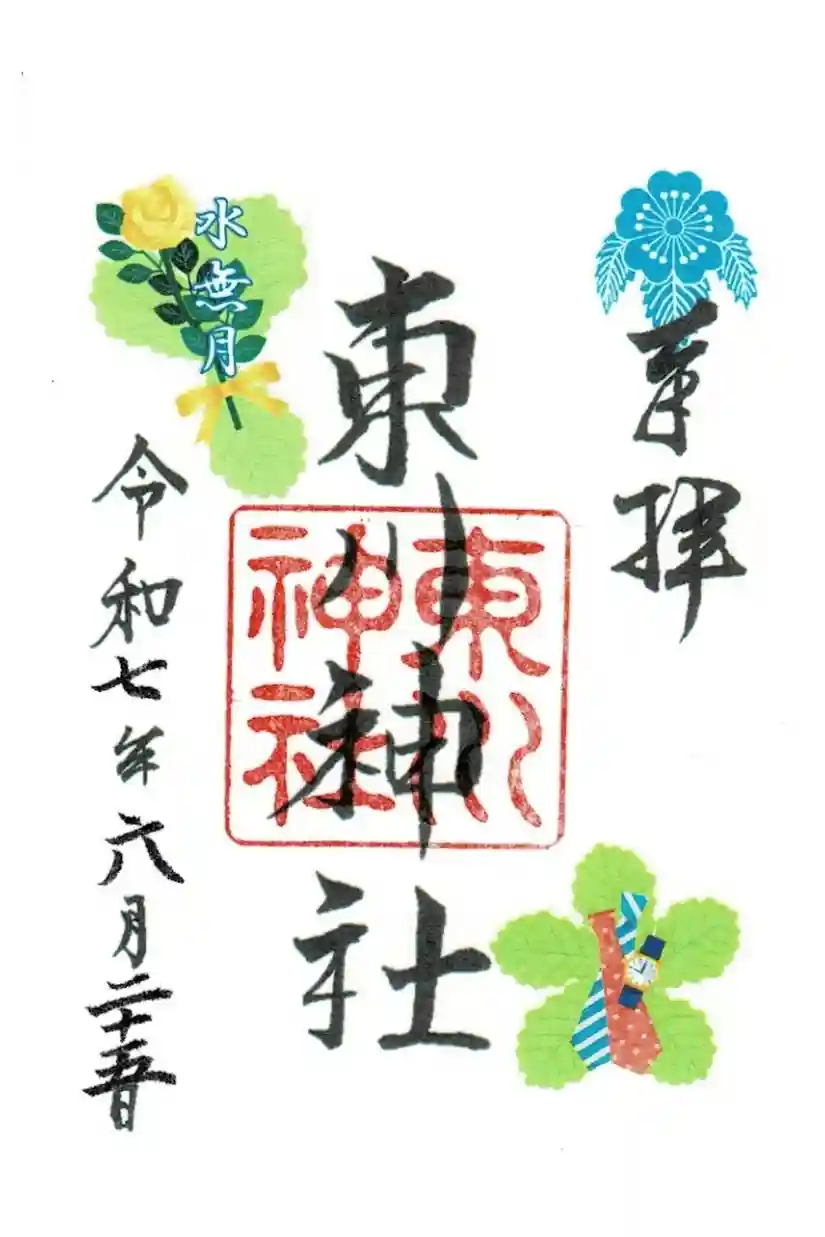 奉拝
東川神社
東川
神社
水無月
令和七年六月二十五日